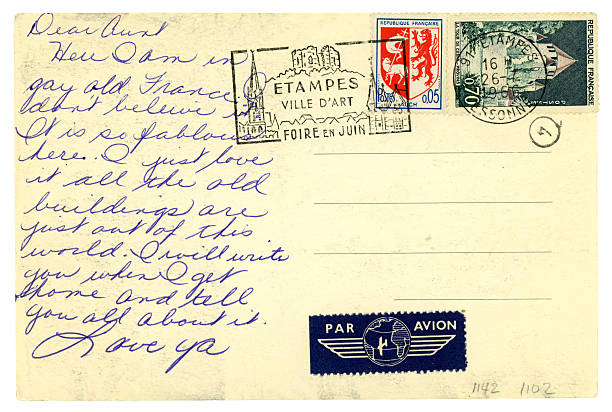 Dear Aunt
Here I am in
gay old France I
don't believe
It is so fablous
here. I just love
it all the old
buildings are
just out of this
world. I will write
you when I get
home and tell
you all about it.
Love ya
ETAMPES
VILLE D'ART
FOIRE EN JUIN
REPUBLIQUE FRANÇAISE
AUCH
0,05
0,70
REPUBLIQUE FRANÇAISE
91 ETAMPES
16
26-7
196
ESSONNE
4
PAR AVION
1142 1102